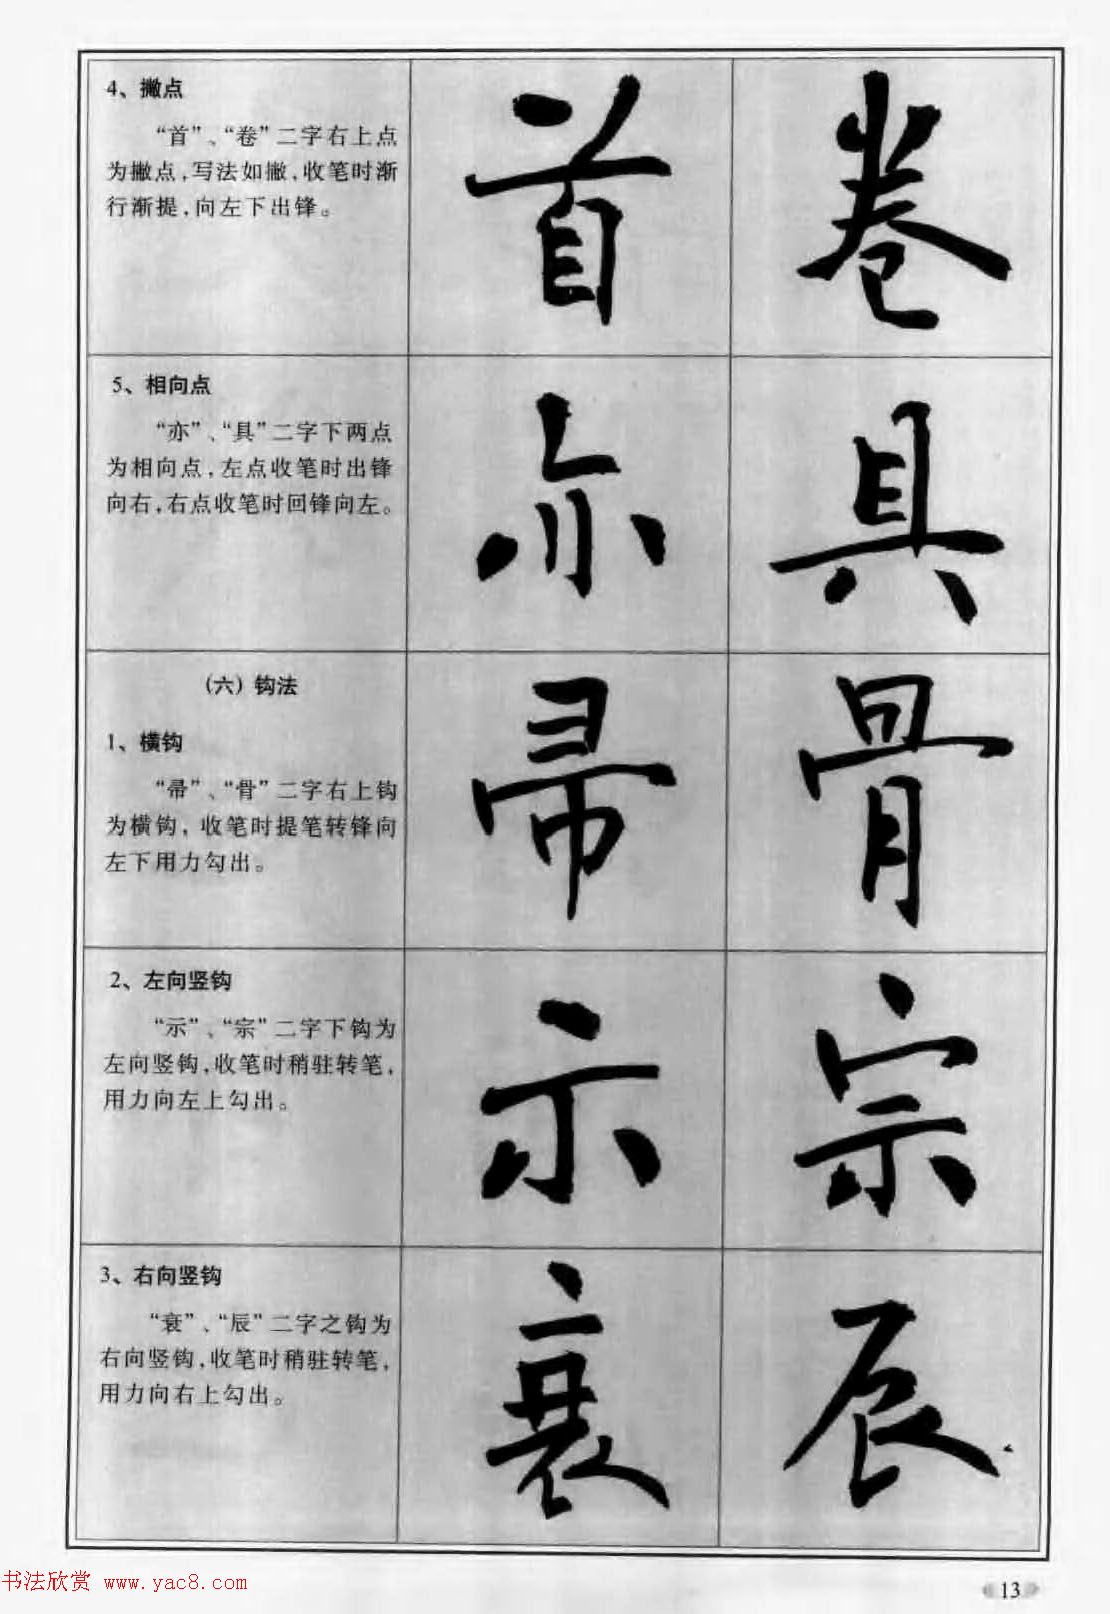 4、撇点
“首”、“卷”二字右上点
为撇点,写法如撇,收笔时渐
行渐提,向左下出锋。
首
卷
5、相向点
“亦”、“具”二字下两点
为相向点,左点收笔时出锋
向右,右点收笔时回锋向左。
亦
具
(六)钩法
1、横钩
“帚”、“骨”二字右上钩
为横钩,收笔时提笔转锋向
左下用力勾出。
帚
骨
2、左向竖钩
“示”、“宗”二字下钩为
左向竖钩,收笔时稍驻转笔,
用力向左上勾出。
示
宗
3、右向竖钩
“衰”、“辰”二字之钩为
右向竖钩,收笔时稍驻转笔,
用力向右上勾出。
衰
辰
书法欣赏 www.yac8.com
13